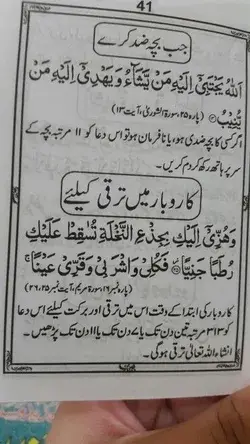 41
جب بچہ ضد کرے
اَللّٰهُ يَجْتَبِيْٓ اِلَيْهِ مَنْ يَّشَآءُ وَيَهْدِيْٓ اِلَيْهِ مَنْ
يُّنِيْبُ ۞ (پارہ ۲۵، سورۃ الشوریٰ، آیت ۱۳)
اگر کسی کا بچہ ضدی ہو، یا نافرمان ہو تو اس دعا کو ۱۱ مرتبہ بچہ کے
سر پر ہاتھ رکھ کر دم کریں۔
کاروبار میں ترقی کیلئے
وَهُزِّيْٓ اِلَيْكِ بِجِذْعِ النَّخْلَةِ تُسٰقِطْ عَلَيْكِ
رُطَبًا جَنِيًّا ۞ فَكُلِيْ وَاشْرَبِيْ وَقَرِّيْ عَيْنًا ۚ
(پارہ نمبر ۱۶، سورۃ مریم، آیت نمبر ۲۵، ۲۶)
کاروبار کی ابتدا کے وقت اس میں ترقی اور برکت کیلئے اس دعا
کو ۳۱۳ مرتبہ تین دن تک یا ۷ دن تک یا ۱۱ دن تک پڑھیں۔
انشاء اللہ تعالیٰ ترقی ہوگی۔